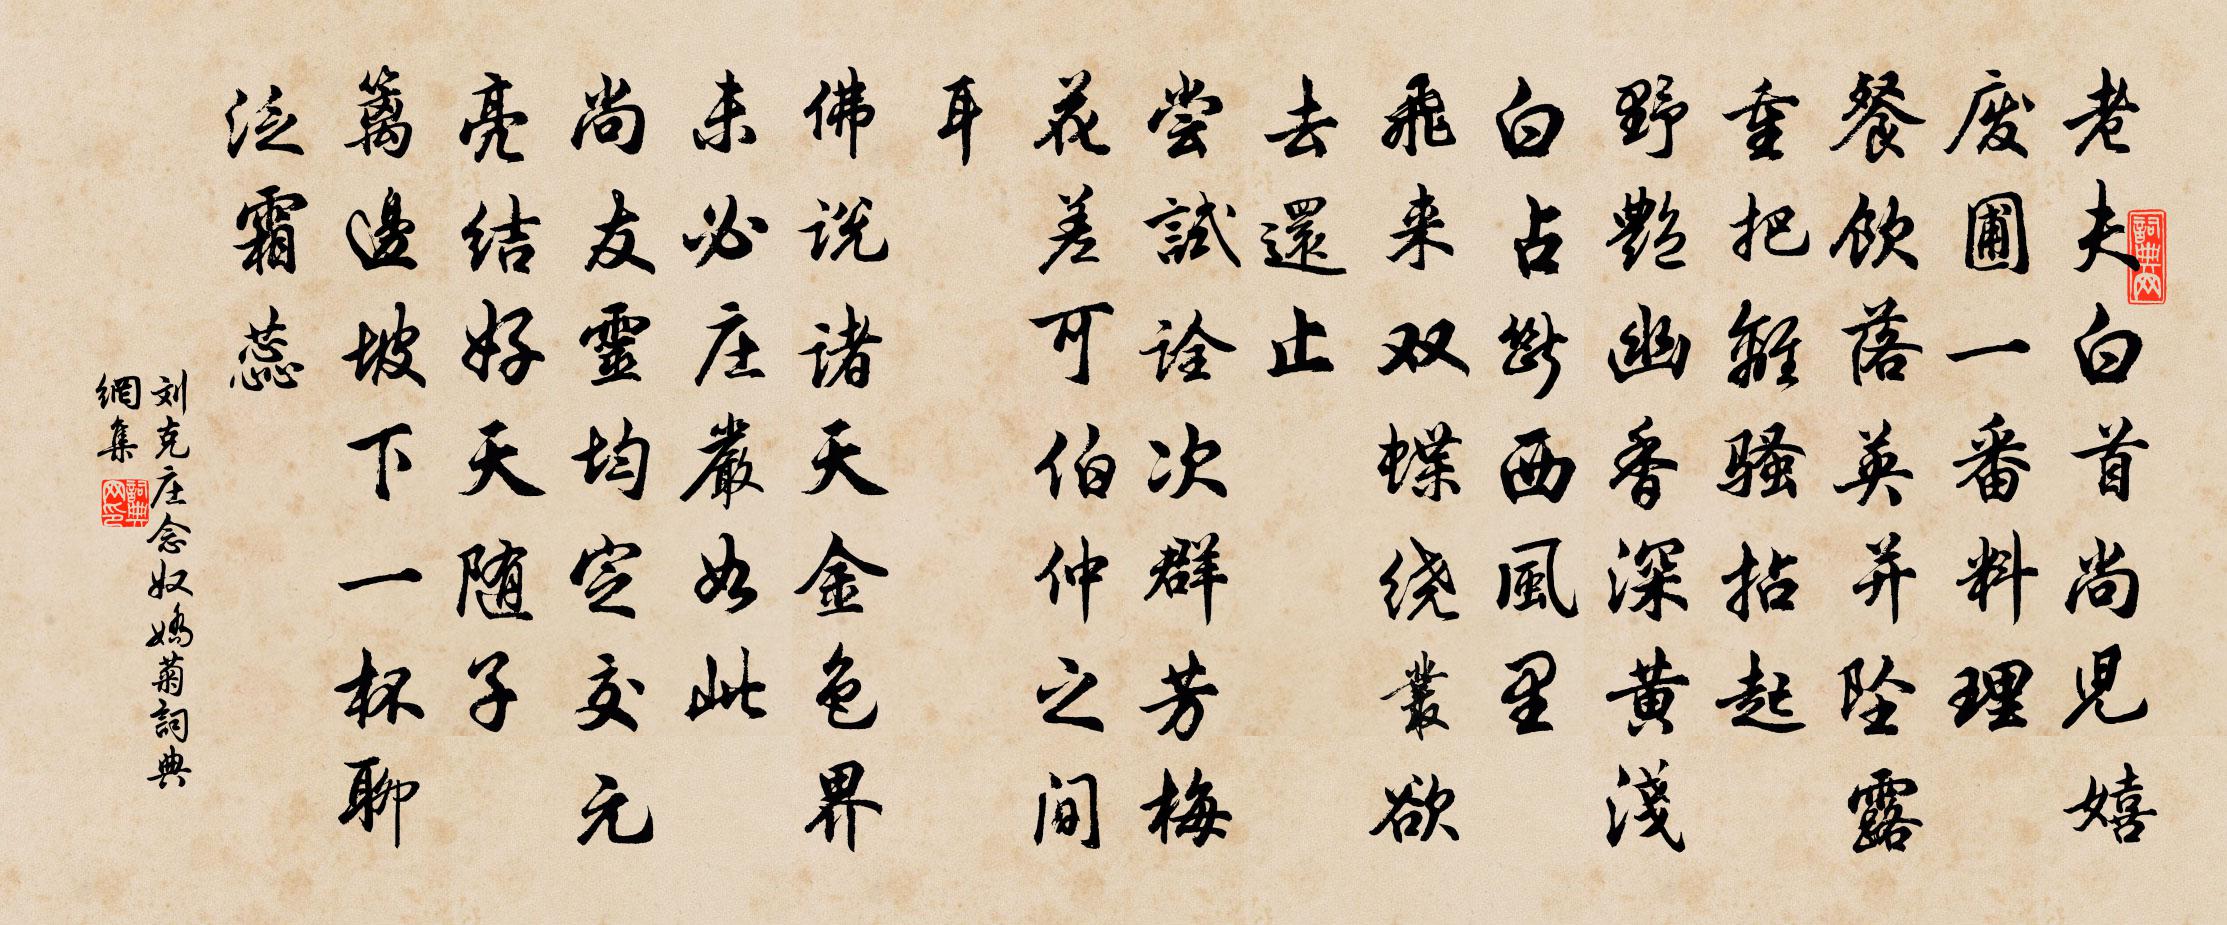 老夫白首尚児嬉
废圃一番料理
餐飲落英并坠露
重把離騷拈起
野艷幽香深黄淺
白占斷西風里
飛来双蝶绕叢欲
去還止
尝試诠次群芳梅
花差可伯仲之间
耳
佛说诸天金色界
未必庄嚴如此
尚友靈均定交元
亮结好天随子
籬邊坡下一杯聊
泛霜蕊
刘克庄念奴嬌菊詞典
網集
詞典网
詞典网印